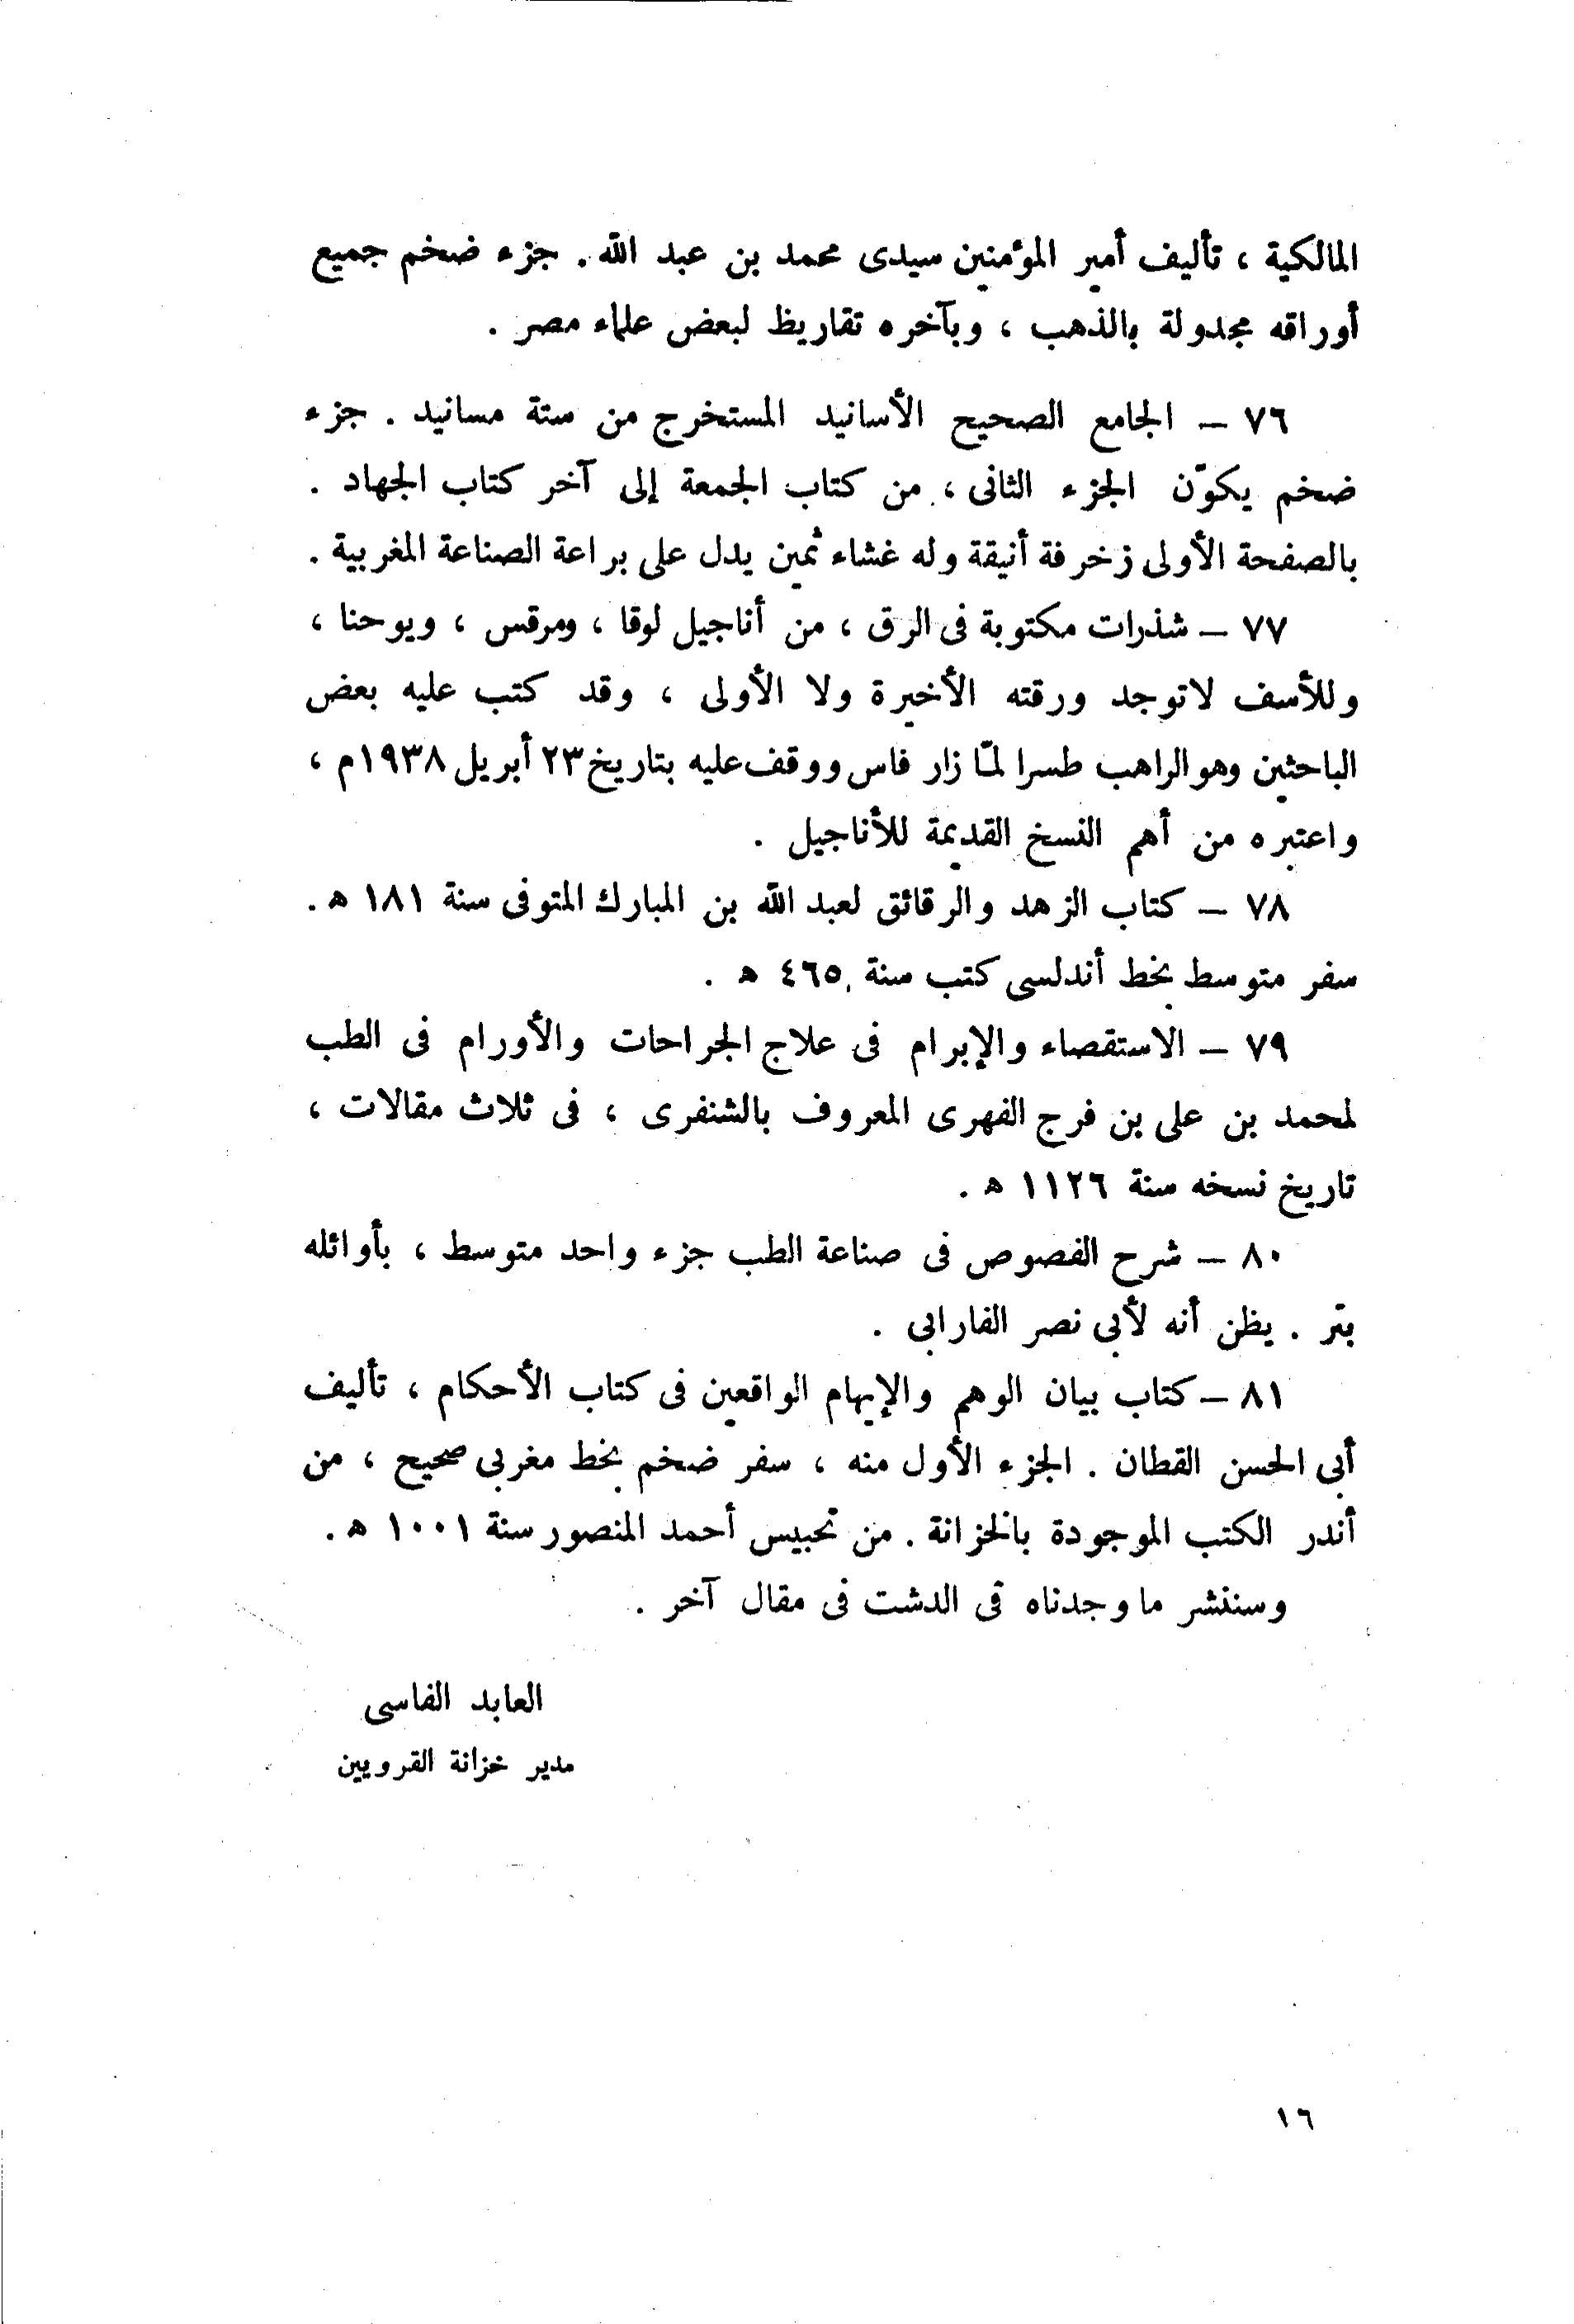 المالكية ، تأليف أمير المؤمنين سيدى محمد بن عبد الله . جزء ضخم جميع
أوراقه مجدولة بالذهب ، وبآخره تقاريظ لبعض علماء مصر .
٧٦ – الجامع الصحيح الأسانيد المستخرج من ستة مسانيد . جزء
ضخم يكوّن الجزء الثانى ، من كتاب الجمعة إلى آخر كتاب الجهاد .
بالصفحة الأولى زخرفة أنيقة وله غشاء ثمين يدل على براعة الصناعة المغربية .
٧٧ – شذرات مكتوبة فى الرق ، من أناجيل لوقا ، ومرقس ، ويوحنا ،
وللأسف لا توجد ورقته الأخيرة ولا الأولى ، وقد كتب عليه بعض
الباحثين وهو الراهب طسرا لمّا زار فاس ووقف عليه بتاريخ ٢٣ أبريل ١٩٣٨م ،
واعتبره من أهم النسخ القديمة للأناجيل .
٧٨ – كتاب الزهد والرقائق لعبد الله بن المبارك المتوفى سنة ١٨١ ه .
سفر متوسط بخط أندلسى كتب سنة ٤٦٥ ه .
٧٩ – الاستقصاء والإبرام فى علاج الجراحات والأورام فى الطب
لمحمد بن على بن فرج الفهرى المعروف بالشنفرى ، فى ثلاث مقالات ،
تاريخ نسخه سنة ١١٢٦ ه .
٨٠ – شرح الفصوص فى صناعة الطب جزء واحد متوسط ، بأوائله
بتر . يظن أنه لأبى نصر الفارابى .
٨١ – كتاب بيان الوهم والإيهام الواقعين فى كتاب الأحكام ، تأليف
أبى الحسن القطان . الجزء الأول منه ، سفر ضخم بخط مغربى صحيح ، من
أندر الكتب الموجودة بالخزانة . من تحبيس أحمد المنصور سنة ١٠٠١ ه .
وسننشر ما وجدناه فى الدشت فى مقال آخر .
العابد الفاسى
مدير خزانة القرويين
١٦